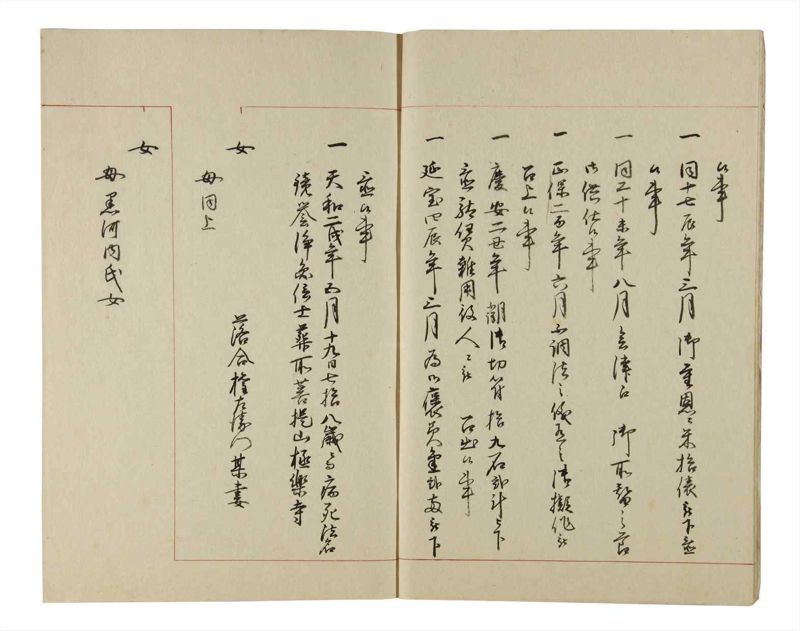 候事
一 同十七辰年三月御重恩之米拾俵被下置
候事
一 同二十未年八月会津江 御所替之節
御供仕候事
一 正保二酉年六月不調法之儀有之 御擬作被
召上候事
一 慶安二丑年 御切符拾九石
雑用役人 被 召出候事
一 延宝四辰年三月為御褒美金 被下
置候事
一 天和二戌年五月十九日七拾八歳 病死法名
誉浄 信士葬所菩提山極楽寺
女
母同上
落合権左衛門某妻
女
母黒河内氏女